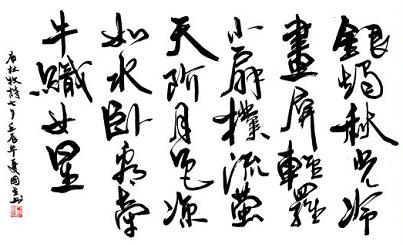 銀燭秋光冷
畫屏輕羅
小扇撲流螢
天階月色涼
如水臥看牽
牛織女星
唐杜牧詩七夕